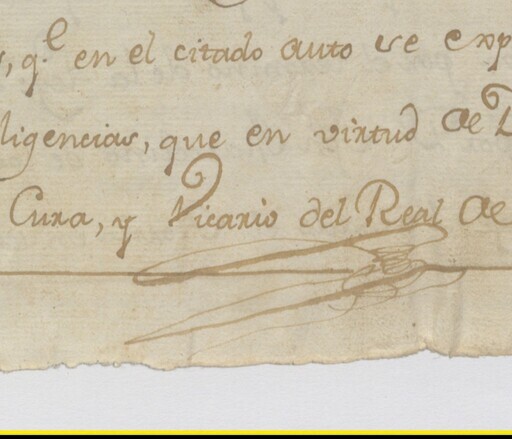 , q.e en el citado auto se exp
ligencias, que en virtud de
Cura, y Vicario del Real de